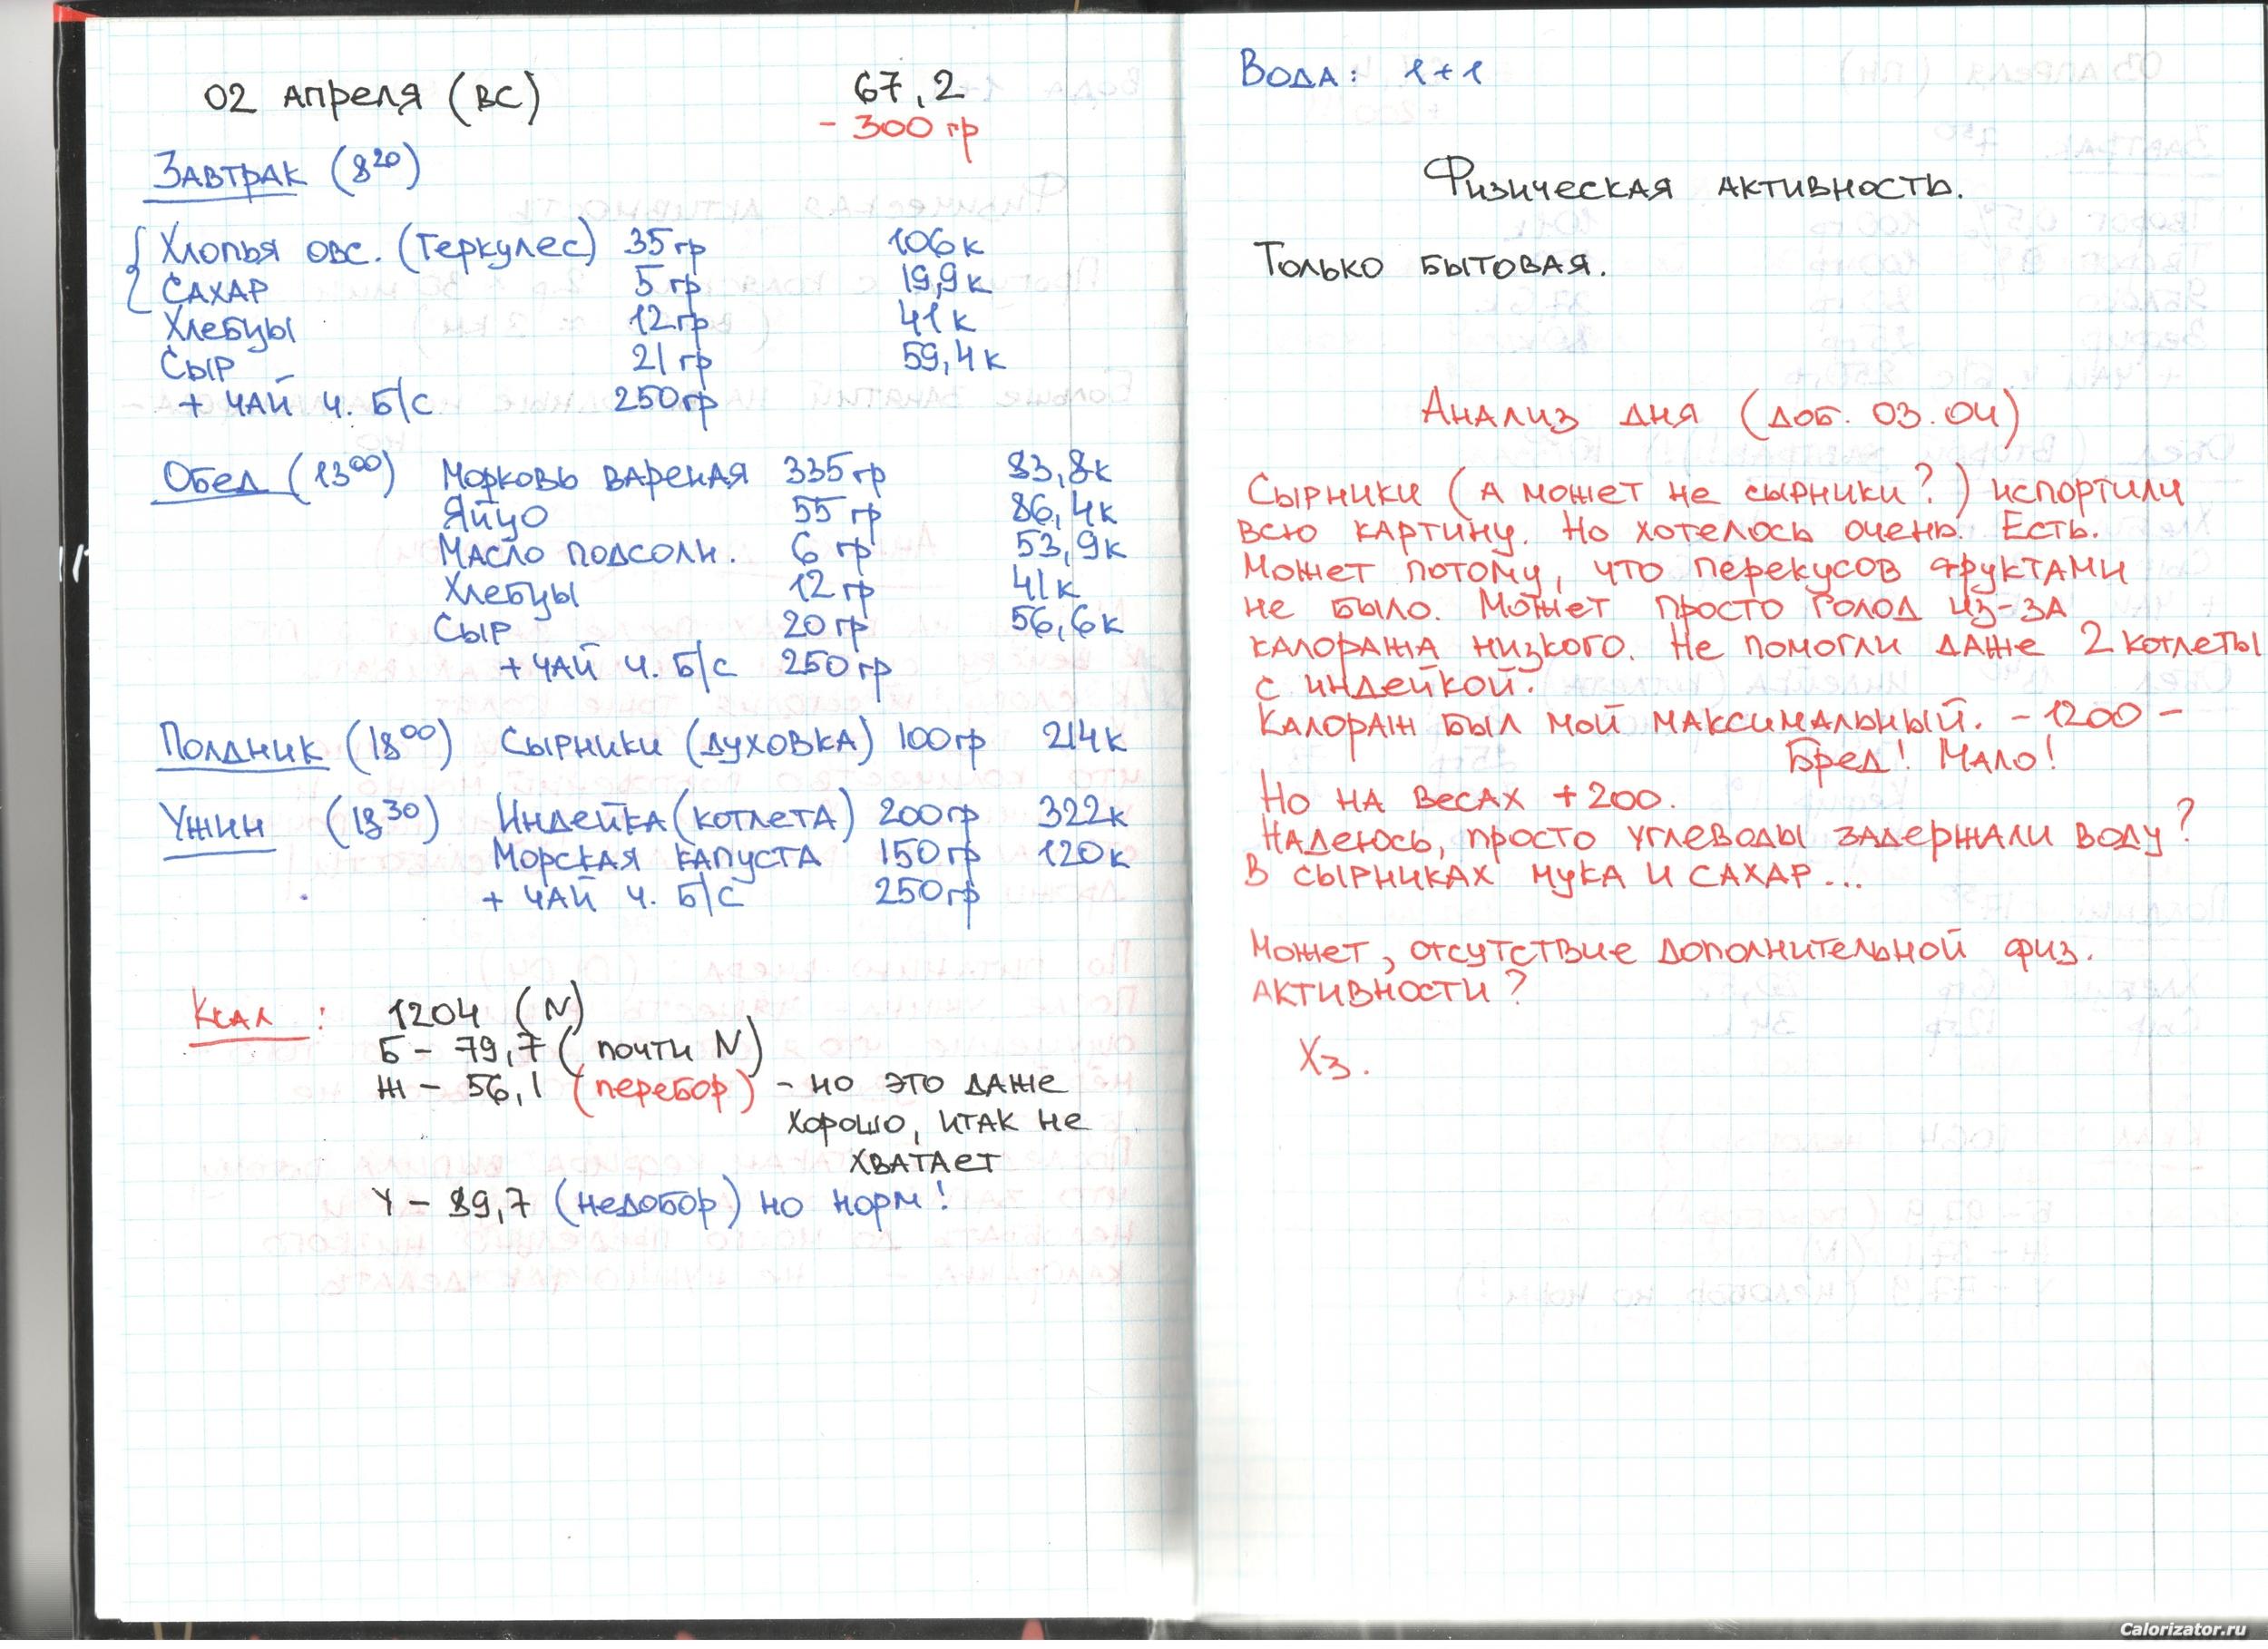 02 апреля (вс) 67,2
- 300 гр
Завтрак (8²⁰)
Хлопья овс. (Геркулес) 35 гр 106 к
Сахар 5 гр 19,9 к
Хлебцы 12 гр 41 к
Сыр 21 гр 59,4 к
+ чай ч. б/с 250 гр
Обед (13⁰⁰) Морковь вареная 335 гр 83,8 к
Яйцо 55 гр 86,4 к
Масло подсолн. 6 гр 53,9 к
Хлебцы 12 гр 41 к
Сыр 20 гр 56,6 к
+ чай ч. б/с 250 гр
Полдник (18⁰⁰) Сырники (духовка) 100 гр 214 к
Ужин (18³⁰) Индейка (котлета) 200 гр 322 к
Морская капуста 150 гр 120 к
+ чай ч. б/с 250 гр
Ккал : 1204 (N)
Б - 79,7 (почти N)
Ж - 56,1 (перебор) - но это даже
хорошо, итак не
хватает
У - 89,7 (недобор) но норм!
Вода: 1+1
Физическая активность.
Только бытовая.
Анализ дня (доб. 03.04)
Сырники (а может не сырники?) испортили
всю картину. Но хотелось очень. Есть.
Может потому, что перекусов фруктами
не было. Может просто голод из-за
калоража низкого. Не помогли даже 2 котлеты
с индейкой.
Калораж был мой максимальный. - 1200 -
Бред! Мало!
Но на весах +200.
Надеюсь, просто углеводы задержали воду?
В сырниках мука и сахар...
Может, отсутствие дополнительной физ.
активности?
Хз.
Calorizator.ru